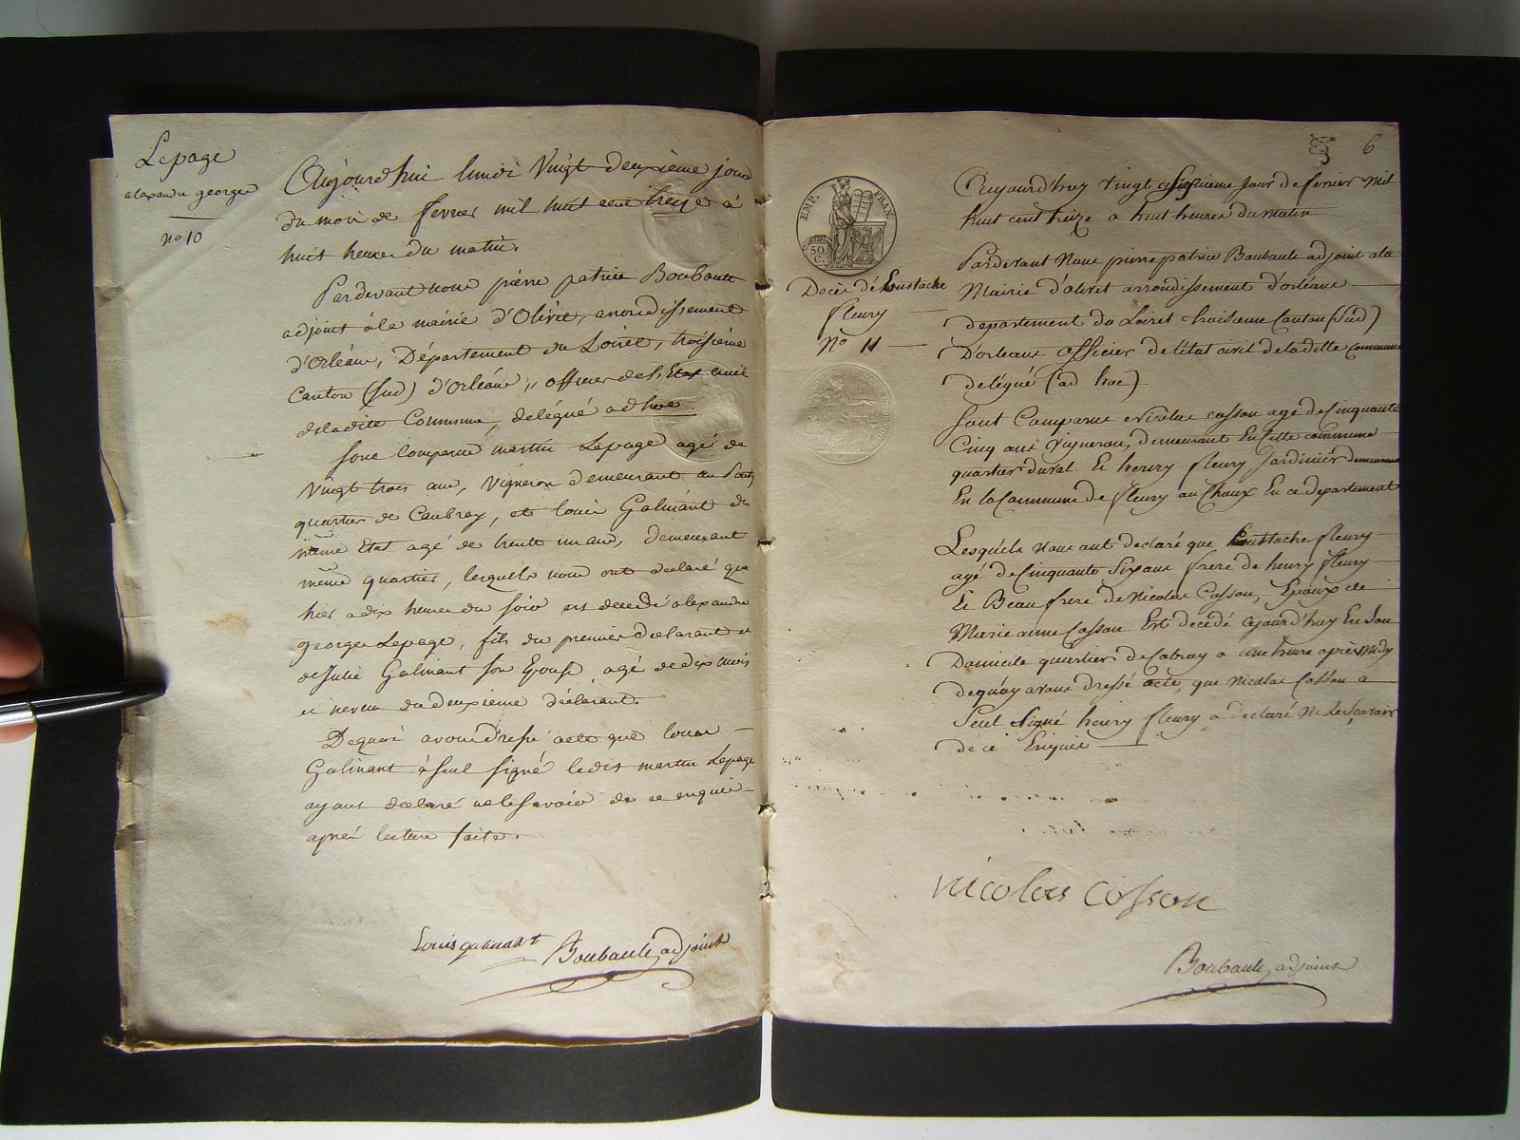 Lepage
alexandre george
no 10
Aujourdhui lundi Vingt deuxième jour
du mois de fevrier mil huit cent treize à
huit heures du matin.
Pardevant nous pierre patrice Boubault
adjoint à la mairie d'Olivet, arrondissement
d'Orléans, Département du Loiret, troisième
Canton (sud) d'Orléans, officier de l'Etat civil
de ladite Commune, délégué ad hoc
sont comparus martin Lepage agé de
Vingt trois ans, Vigneron demeurant au
quartier de Caubray, et louis Galinant de
même Etat agé de trente un ans, demeurant
même quartier, lesquels nous ont déclaré que
hier a dix heures du soir est décédé alexandre
george Lepage, fils du premier déclarant et
de Julie Galinant son Epouse, agé de dix mois
et neveu du deuxieme déclarant.
De quoi avons dressé acte que louis
Galinant à seul signé ledit martin Lepage
ayant déclaré ne le savoir de ce enquis
après lecture faite.
Boubault, adjoint
6
EMP. FRAN.
50 C.
Decès d'Eustache
fleury
No 11
Aujourd'huy vingt sixieme Jour de fevrier mil
huit cent treize a huit heures du matin
Pardevant Nous pierre patrice Boubault adjoint ala
Mairie d'olivet arrondissement d'orleans
departement du Loiret troisieme Canton (Sud)
D'orleans officier de l'état civil de ladite Commune
delégué (ad hoc)
Sont Comparus Nicolas Cosson agé de Cinquante
Cinq ans Vigneron, demeurant En Cette commune
quartier duval Et henry fleury Jardinier demeurant
En la Commune de fleury au Choux En ce departement
Lesquels Nous ont declaré que Eustache fleury
agé de Cinquante Six ans frere de henry fleury
Et Beau frere de Nicolas Cosson, Epoux de
Marie anne Cosson Est decédé aujourd'huy En son
Domicile quartier de Cabray a une heure après Midy
de quoy avons dressé acte, que Nicolas Cosson a
Seul Signé henry fleury a declaré Ne le Savoir
de ce Enquis
nicolas cosson
Boubault, adjoint